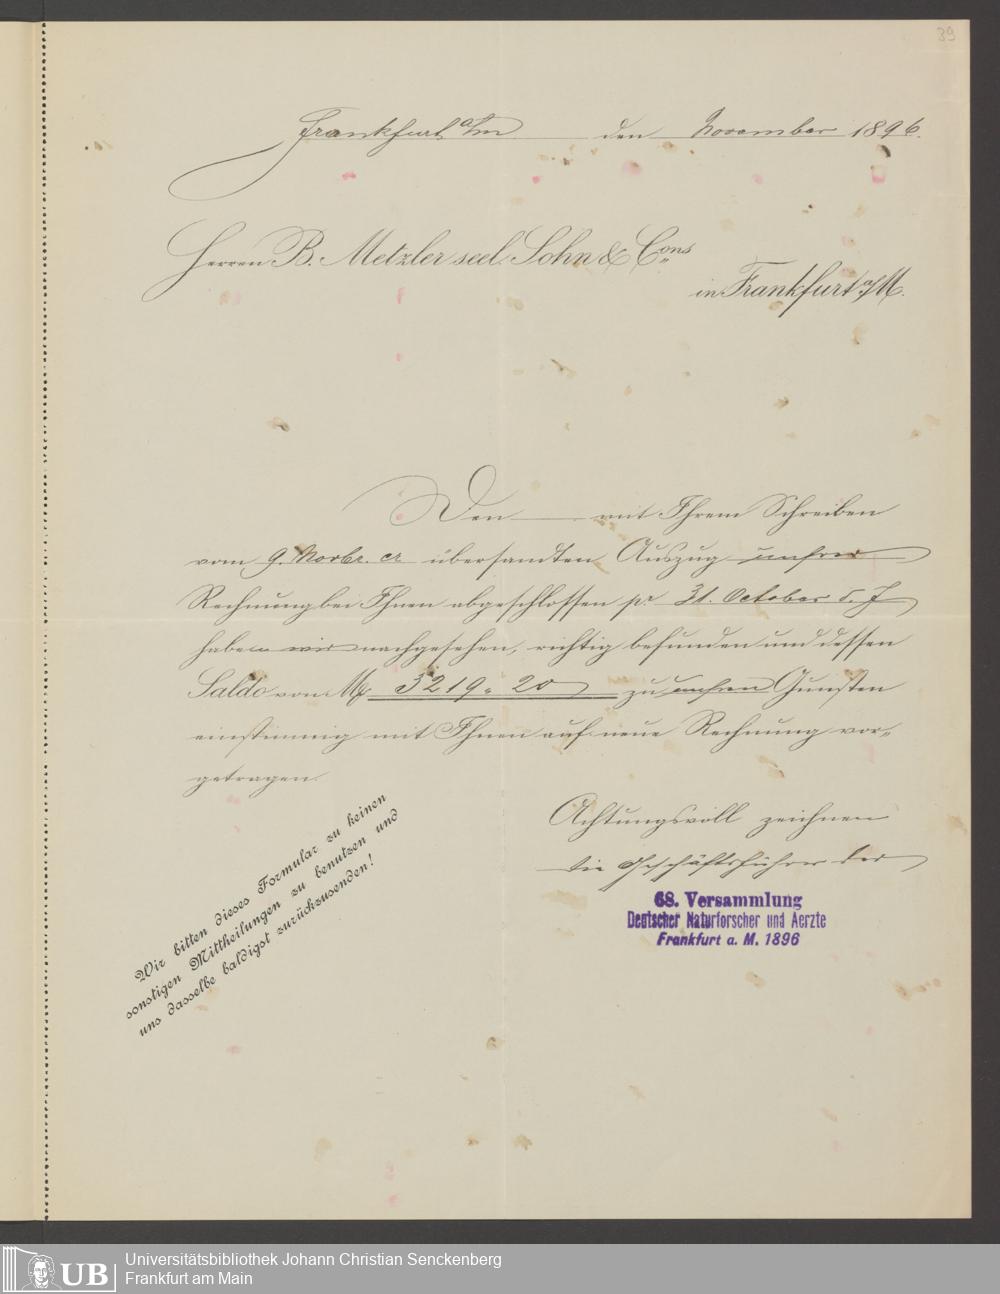 39
Frankfurt a/m den November 1896.
Herren B. Metzler seel. Sohn & Cons
in Frankfurt a/M.
Den mit Ihrem Schreiben
vom 9. Novbr. cr übersandten Auszug unsrer
Rechnung bei Ihnen abgeschlossen pr 31. October d. J
haben wir nachgesehen, richtig befunden und dessen
Saldo von Mk 3219.20 zu unsren Gunsten
einstimmig mit Ihnen auf neue Rechnung vor-
getragen.
Achtungsvoll zeichnen
die Geschäftsführer der
68. Versammlung
Deutscher Naturforscher und Aerzte
Frankfurt a. M. 1896
Wir bitten dieses Formular zu keinen
sonstigen Mittheilungen zu benutzen und
uns dasselbe baldigst zurückzusenden!
UB
Universitätsbibliothek Johann Christian Senckenberg
Frankfurt am Main